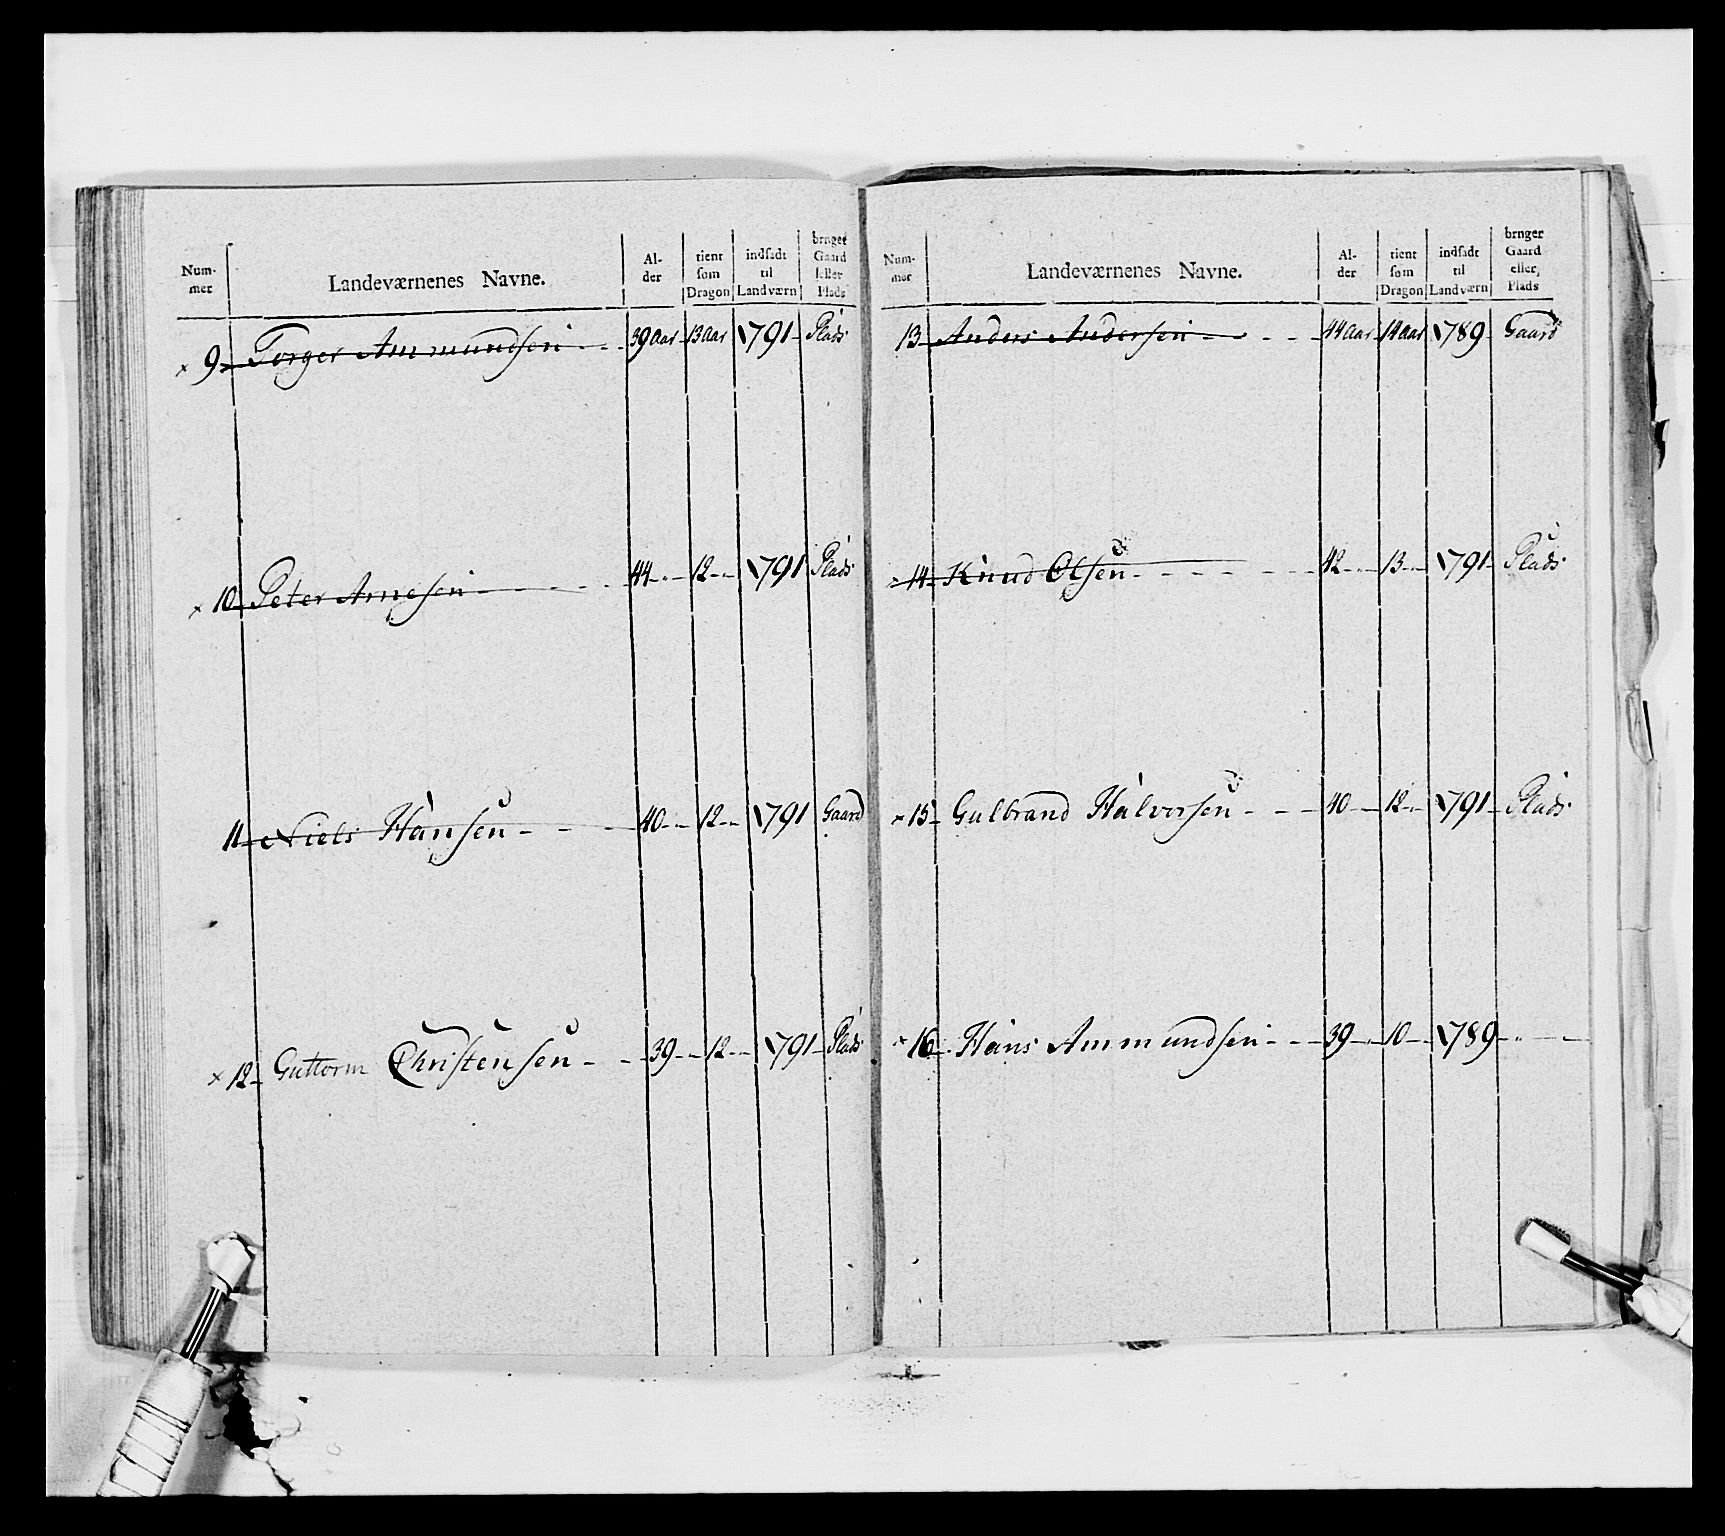 Num-
mer
Landeværnenes Navne.
Al-
der
tient
som
Dragon
indsadt
til
Landværn
bruger
Gaard
eller
Plads
× 9 Torger Ammundsen - - 39 aar 13 aar 1791 Plads
× 10 Peter Arnesen - - - - 44 - „ - 12 - „ 1791 Plads
11 Niels Hansen - - - 40 - „ 12 - „ 1791 Gaard
× 12 Guttorm Christensen - - 39 - „ 12 - „ 1791 Plads
Num-
mer
Landeværnenes Navne.
Al-
der
tient
som
Dragon
indsadt
til
Landværn
bruger
Gaard
eller,
Plads
13 Anders Andersen - - - - 44 aar 14 aar 1789 Gaard
× 14 Knud Olsen - - - - - - 42 - „ 13 - „ 1791 Plads
× 15 Gulbrand Halvorsen - - - 40 - „ 12 - „ 1791 Plads
× 16 Hans Ammundsen - - - 39 - „ 10 - „ 1789 - „ -